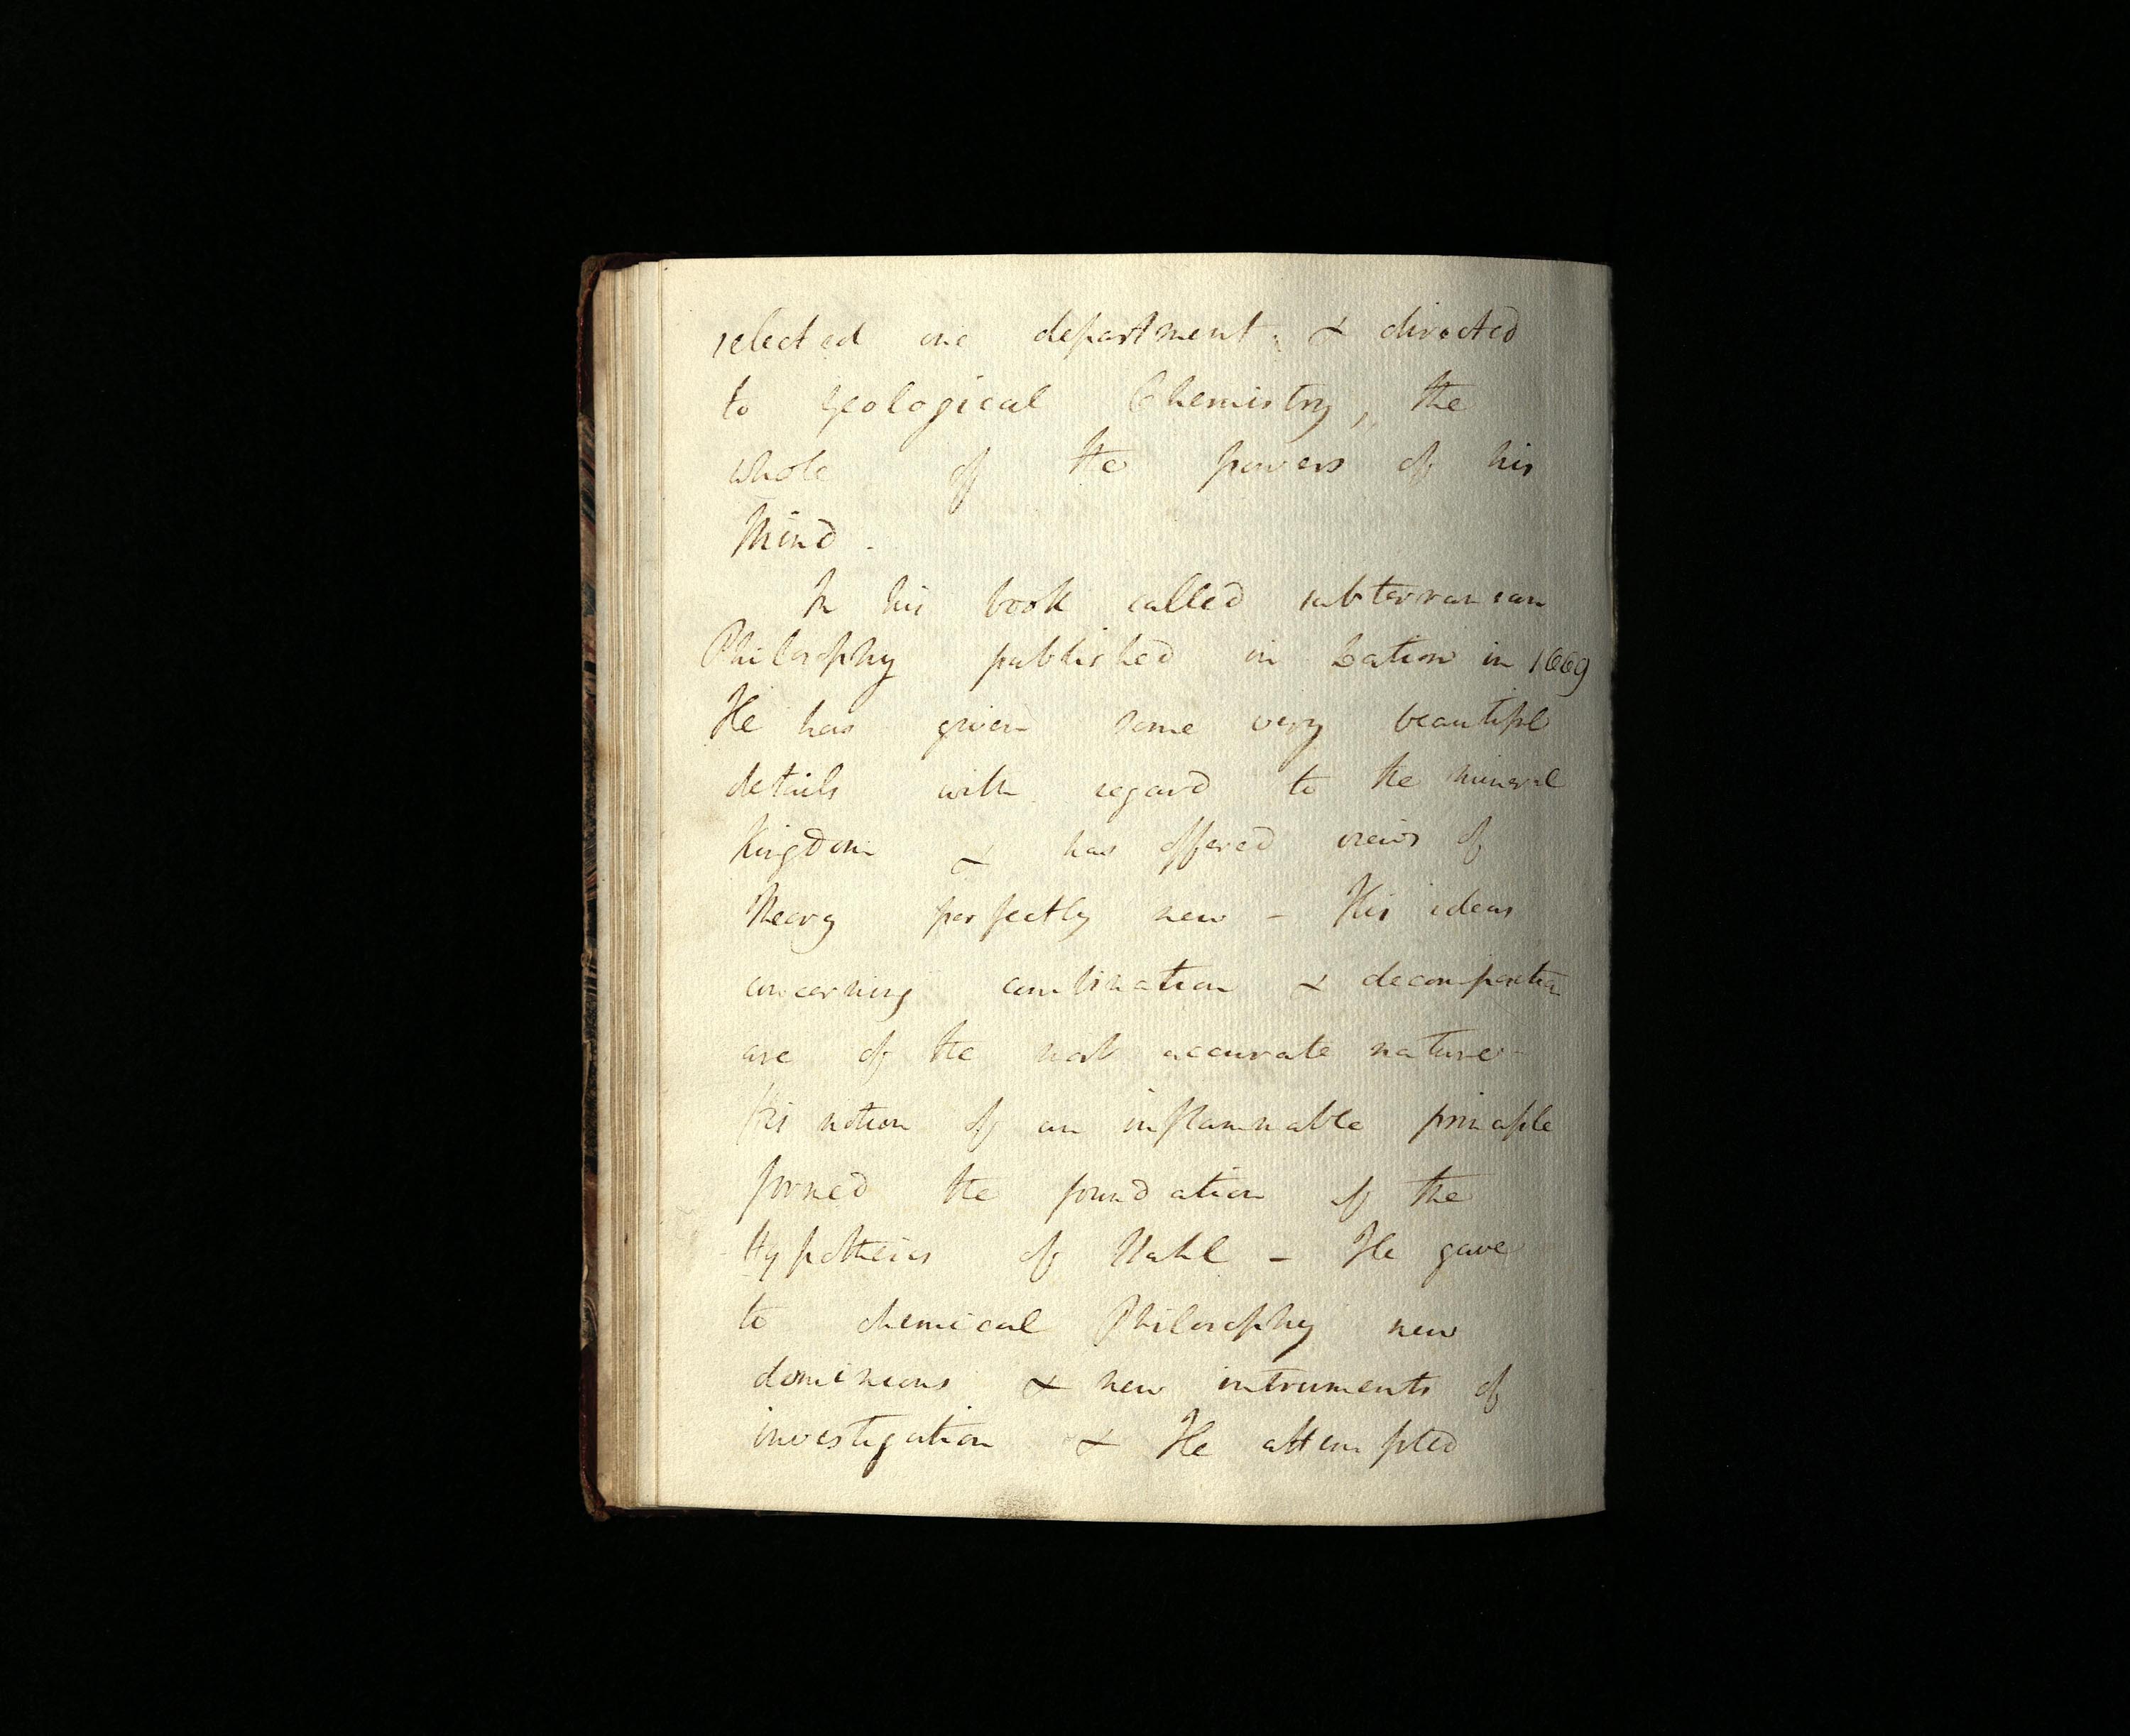 selected one department & directed
to geological Chemistry, the
whole of the powers of his
Mind.
In his book called subterranean
Philosophy published in Latin in 1669
He has given some very beautiful
details with regard to the mineral
Kingdom & has offered views of
theory perfectly new - His ideas
concerning combination & decomposition
are of the most accurate nature -
His notion of an inflammable principle
formed the foundation of the
Hypothesis of Stahl - He gave
to chemical Philosophy new
dominions & new intruments of
investigation & He attempted